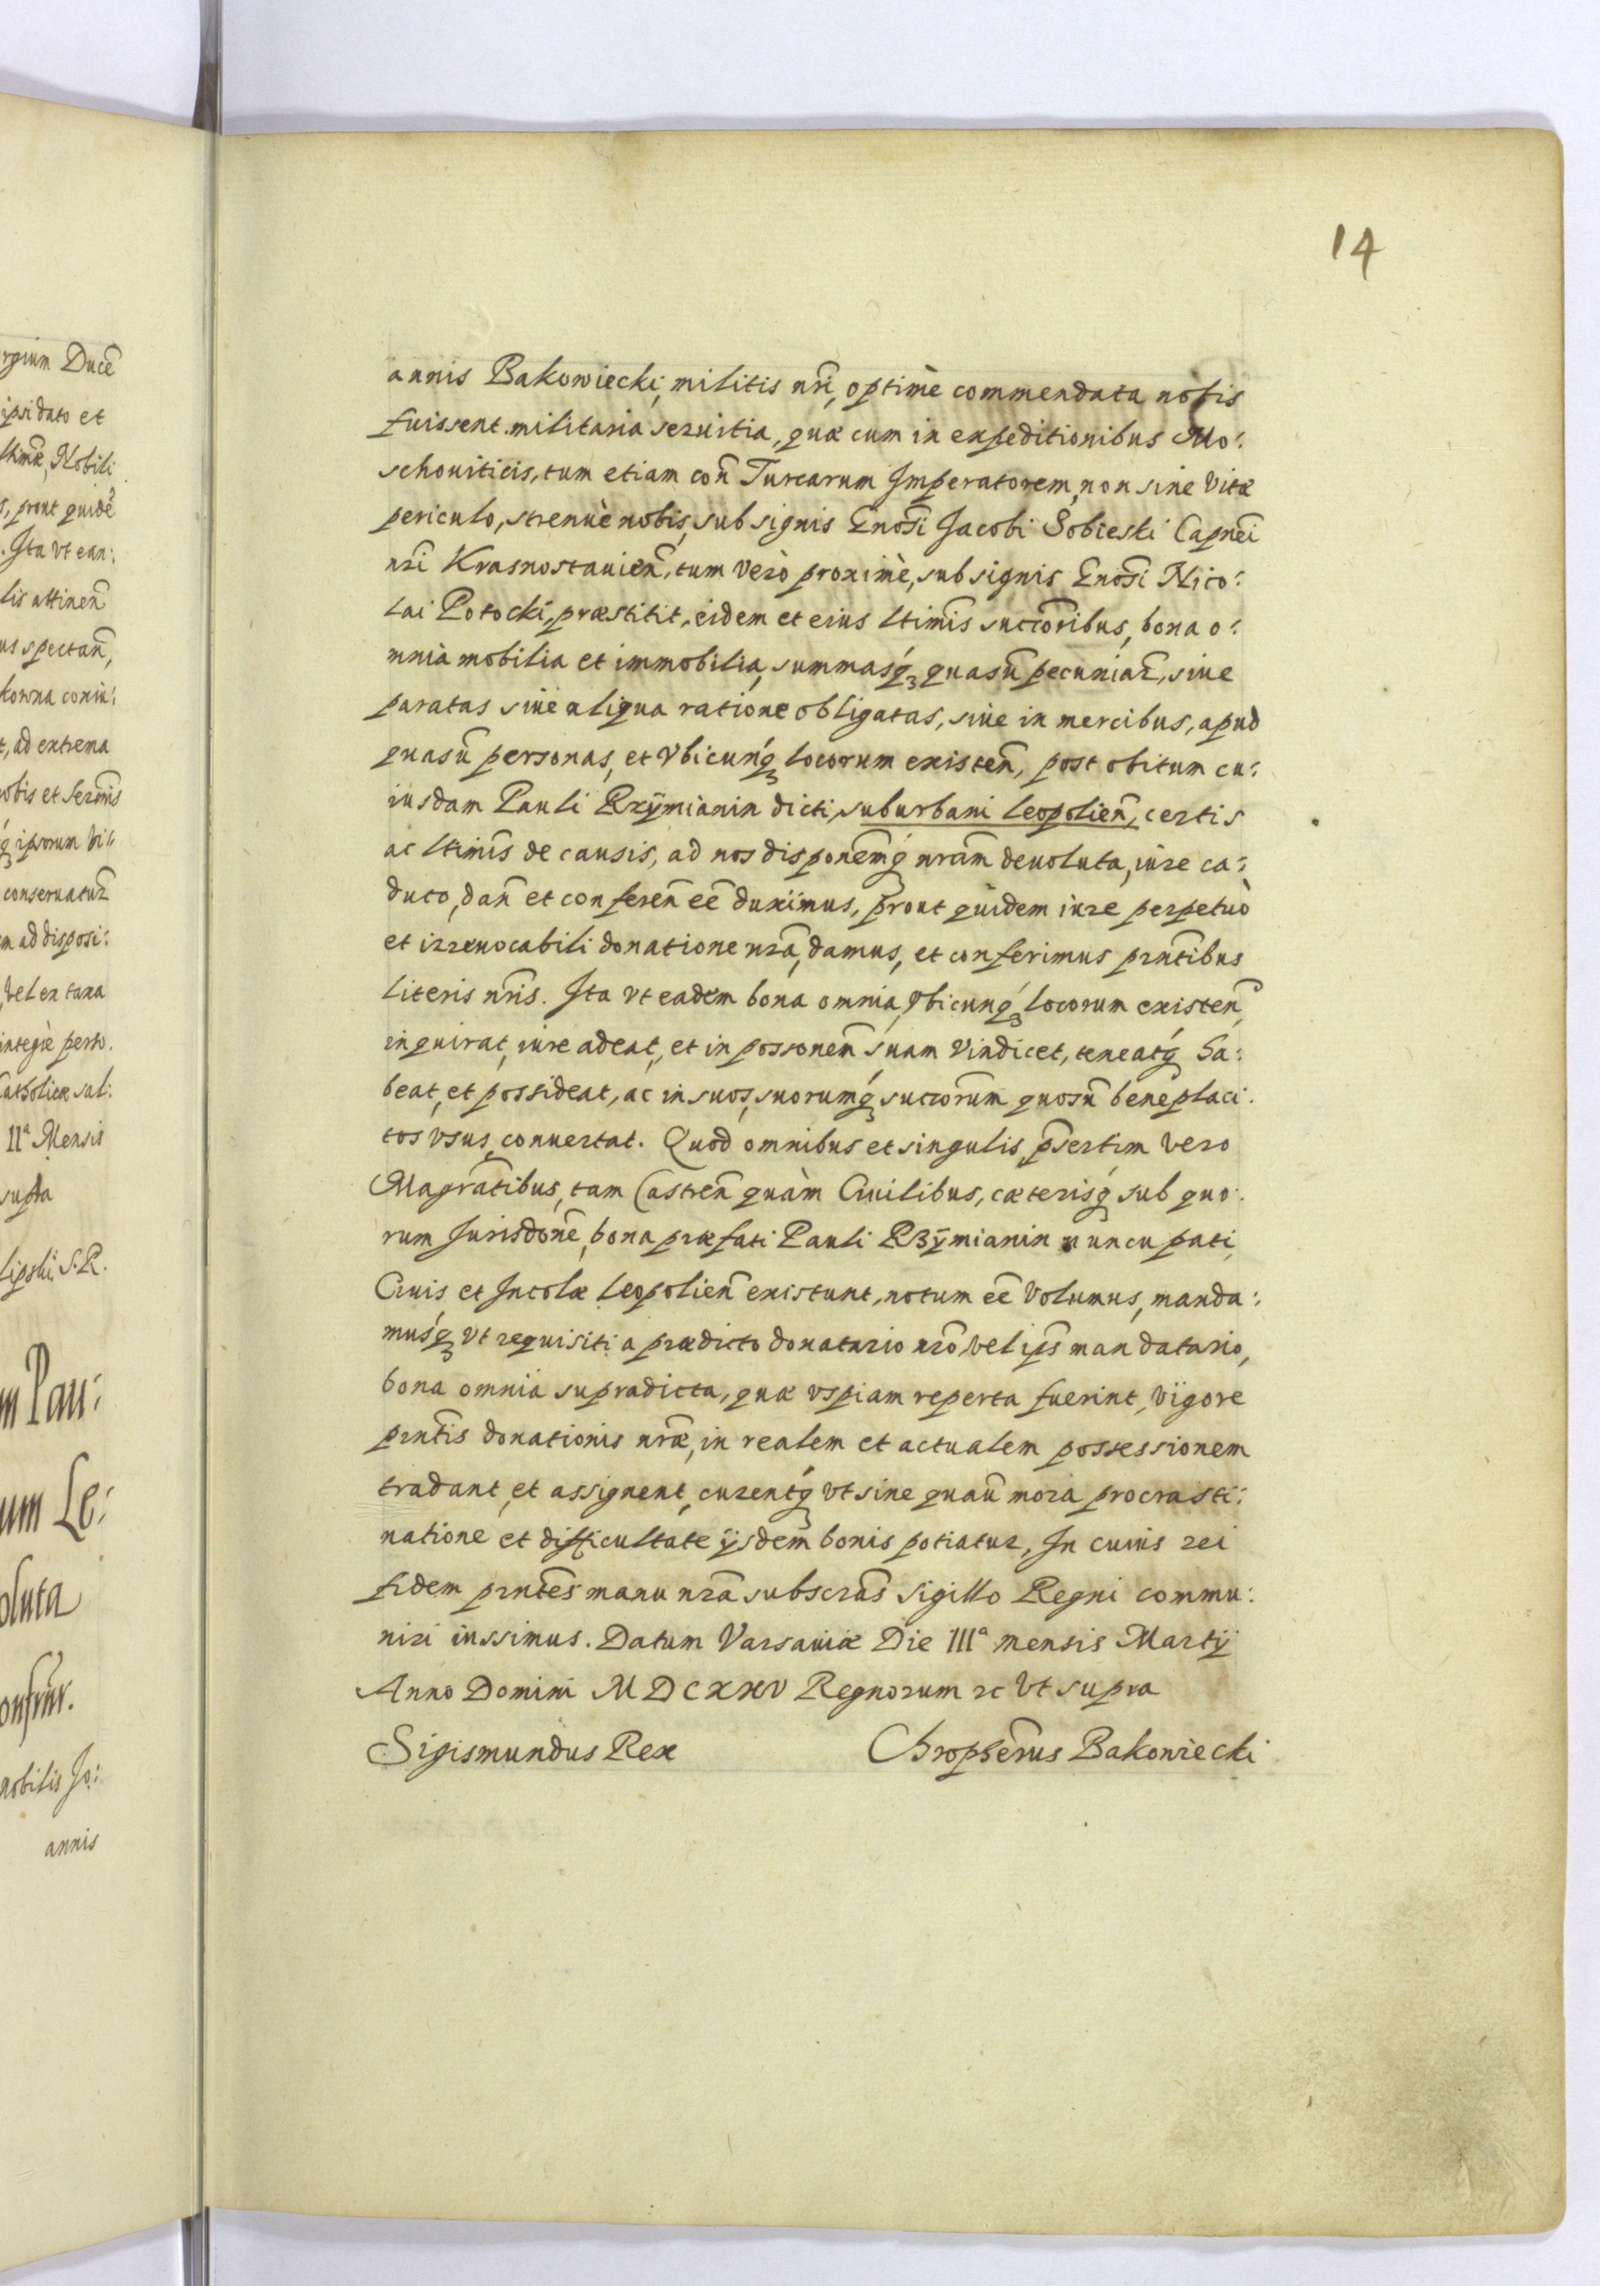 14
rgium Ducē
ipsi dato et
Nobili
prout quidē
Ita vt ean:
lis attinen̄
us spectan̄,
kowna coniu:
t, ad extrema
nobis et Seren̄is
ipsorum
conseruatur̄
m ad disposi:
vel ex taxa
integrè perso.
Catholicæ sal:
IIª Mensis
supra
Lipski, S. R.
m Pau:
um Le:
oluta
onfr̄tur.
nobilis Jo:
annis
annis Bakowiecki, militis nr̄i, optimè commendata nobis
fuissent militaria seruitia, quæ cum in expeditionibus Mo:
schouiticis, tum etiam con̄ Turcarum Imperatorem, non sine vitæ
periculo, strenuè nobis, sub signis Gnosī Jacobi Sobieski Capneī
nr̄i Krasnostauien̄, tum verò proximè, sub signis Gnosī Nico:
lai Potocki, præstitit, eidem et eius ltimīs succōribus, bona o:
mnia mobilia et immobilia, summasq́ꝫ quasū pecuniar̄, siue
paratas siue aliqua ratione obligatas, siue in mercibus, apud
quasū personas, et vbicunq́ꝫ locorum existen̄, post obitum cu:
iusdam Pauli Rzÿmianin dicti, suburbani Leopolien̄, certis
ac ltimīs de causis, ad nos disponēmq́ nrām deuoluta, iure ca:
duco, dan̄ et conferen̄ eē duximus, prout quidem iure perpetuò
et irreuocabili donatione nrā, damus, et conferimus prn̄tibus
literis nr̄is. Ita vt eadem bona omnia, vbicunq́ꝫ locorum existen̄,
inquirat, iure adeat, et in possonēm suam vindicet, teneatq́ ha:
beat, et possideat, ac in suos, suorumq́ꝫ succōrum quosū beneplaci:
tos vsus, conuertat. Quod omnibus et singulis, pr̄sertim vero
Magrātibus, tam Castren̄ quàm Ciuilibus, cæterisq́ sub quo:
rum Jurisdonē, bona præfati Pauli Rzÿmianin nuncupati,
Ciuis et Incolæ Leopolien̄ existunt, notum eē volumus, manda:
musq́ꝫ vt requisiti a prædicto donatario nrō vel ip̄s mandatario,
bona omnia supradicta, quæ vspiam reperta fuerint, vigore
prn̄tis donationis nrǣ, in realem et actualem possessionem
tradant, et assignent, curentq́ vt sine quaū mora procrasti:
natione et difficultate ijsdem bonis potiatur, In cuius rei
fidem prn̄tes manu nrā subscrās sigillo Regni commu:
niri iussimus. Datum Varsauiæ Die IIIª mensis Martij
Anno Domini MDCXXV Regnorum ꝛc vt supra
Sigismundus Rex Chrophērus Bakowiecki